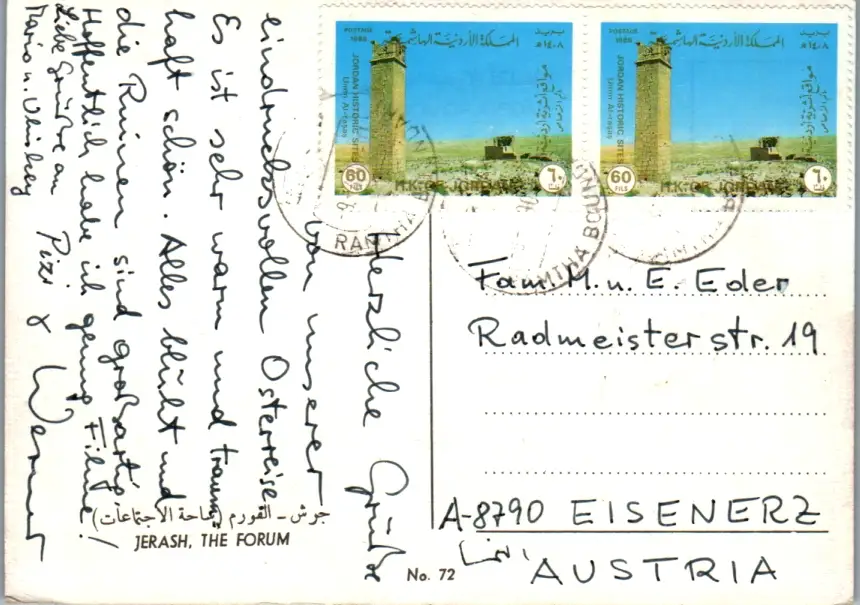 Herzliche Grüße
von unserer
eindrucksvollen Osterreise
Es ist sehr warm und traum-
haft schön. Alles blüht und
die Ruinen sind großartig
Hoffentlich habe ich genug Filme!
Liebe Grüße an Pizi & Werner
Mario u.
جرش - الفورم (ساحة الاجتماعات)
JERASH, THE FORUM
No. 72
POSTAGE
1988
المملكة الأردنية الهاشمية
بريد
١٤٠٨ هـ
JORDAN HISTORIC SITES
Umm Al-rasas
مواقع أثرية أردنية
أم الرصاص
60
FILS
H.K. OF JORDAN
٦٠
فلسا
POSTAGE
1988
المملكة الأردنية الهاشمية
بريد
١٤٠٨ هـ
JORDAN HISTORIC SITES
Umm Al-rasas
مواقع أثرية أردنية
أم الرصاص
60
FILS
H.K. OF JORDAN
٦٠
فلسا
RAMTHA BOUND
RAMTHA BOUND
Fam. M. u. E. Eder
Radmeisterstr. 19
A-8790 EISENERZ
AUSTRIA